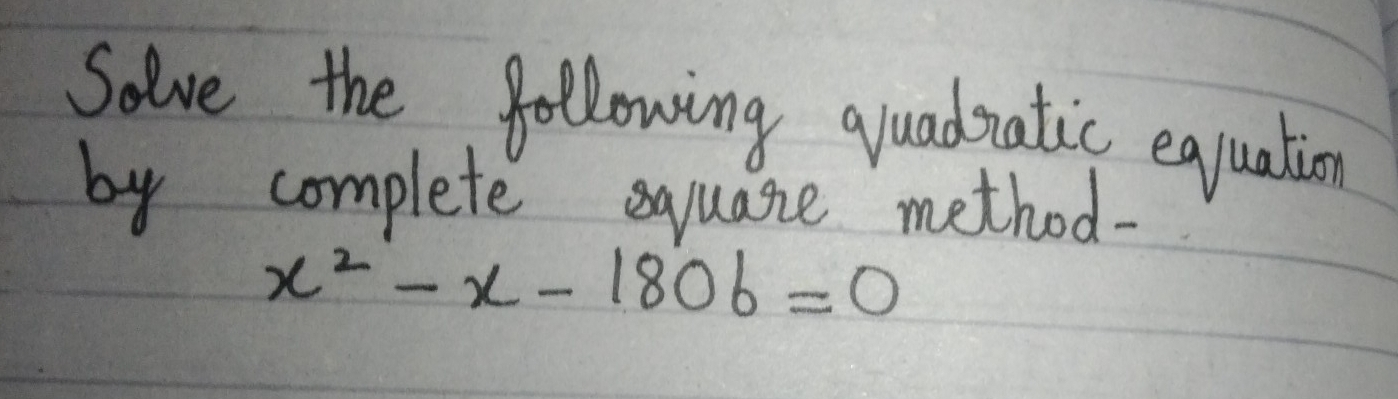 Solve the following quadratic equation
by complete square method-
x² - x - 1806 = 0